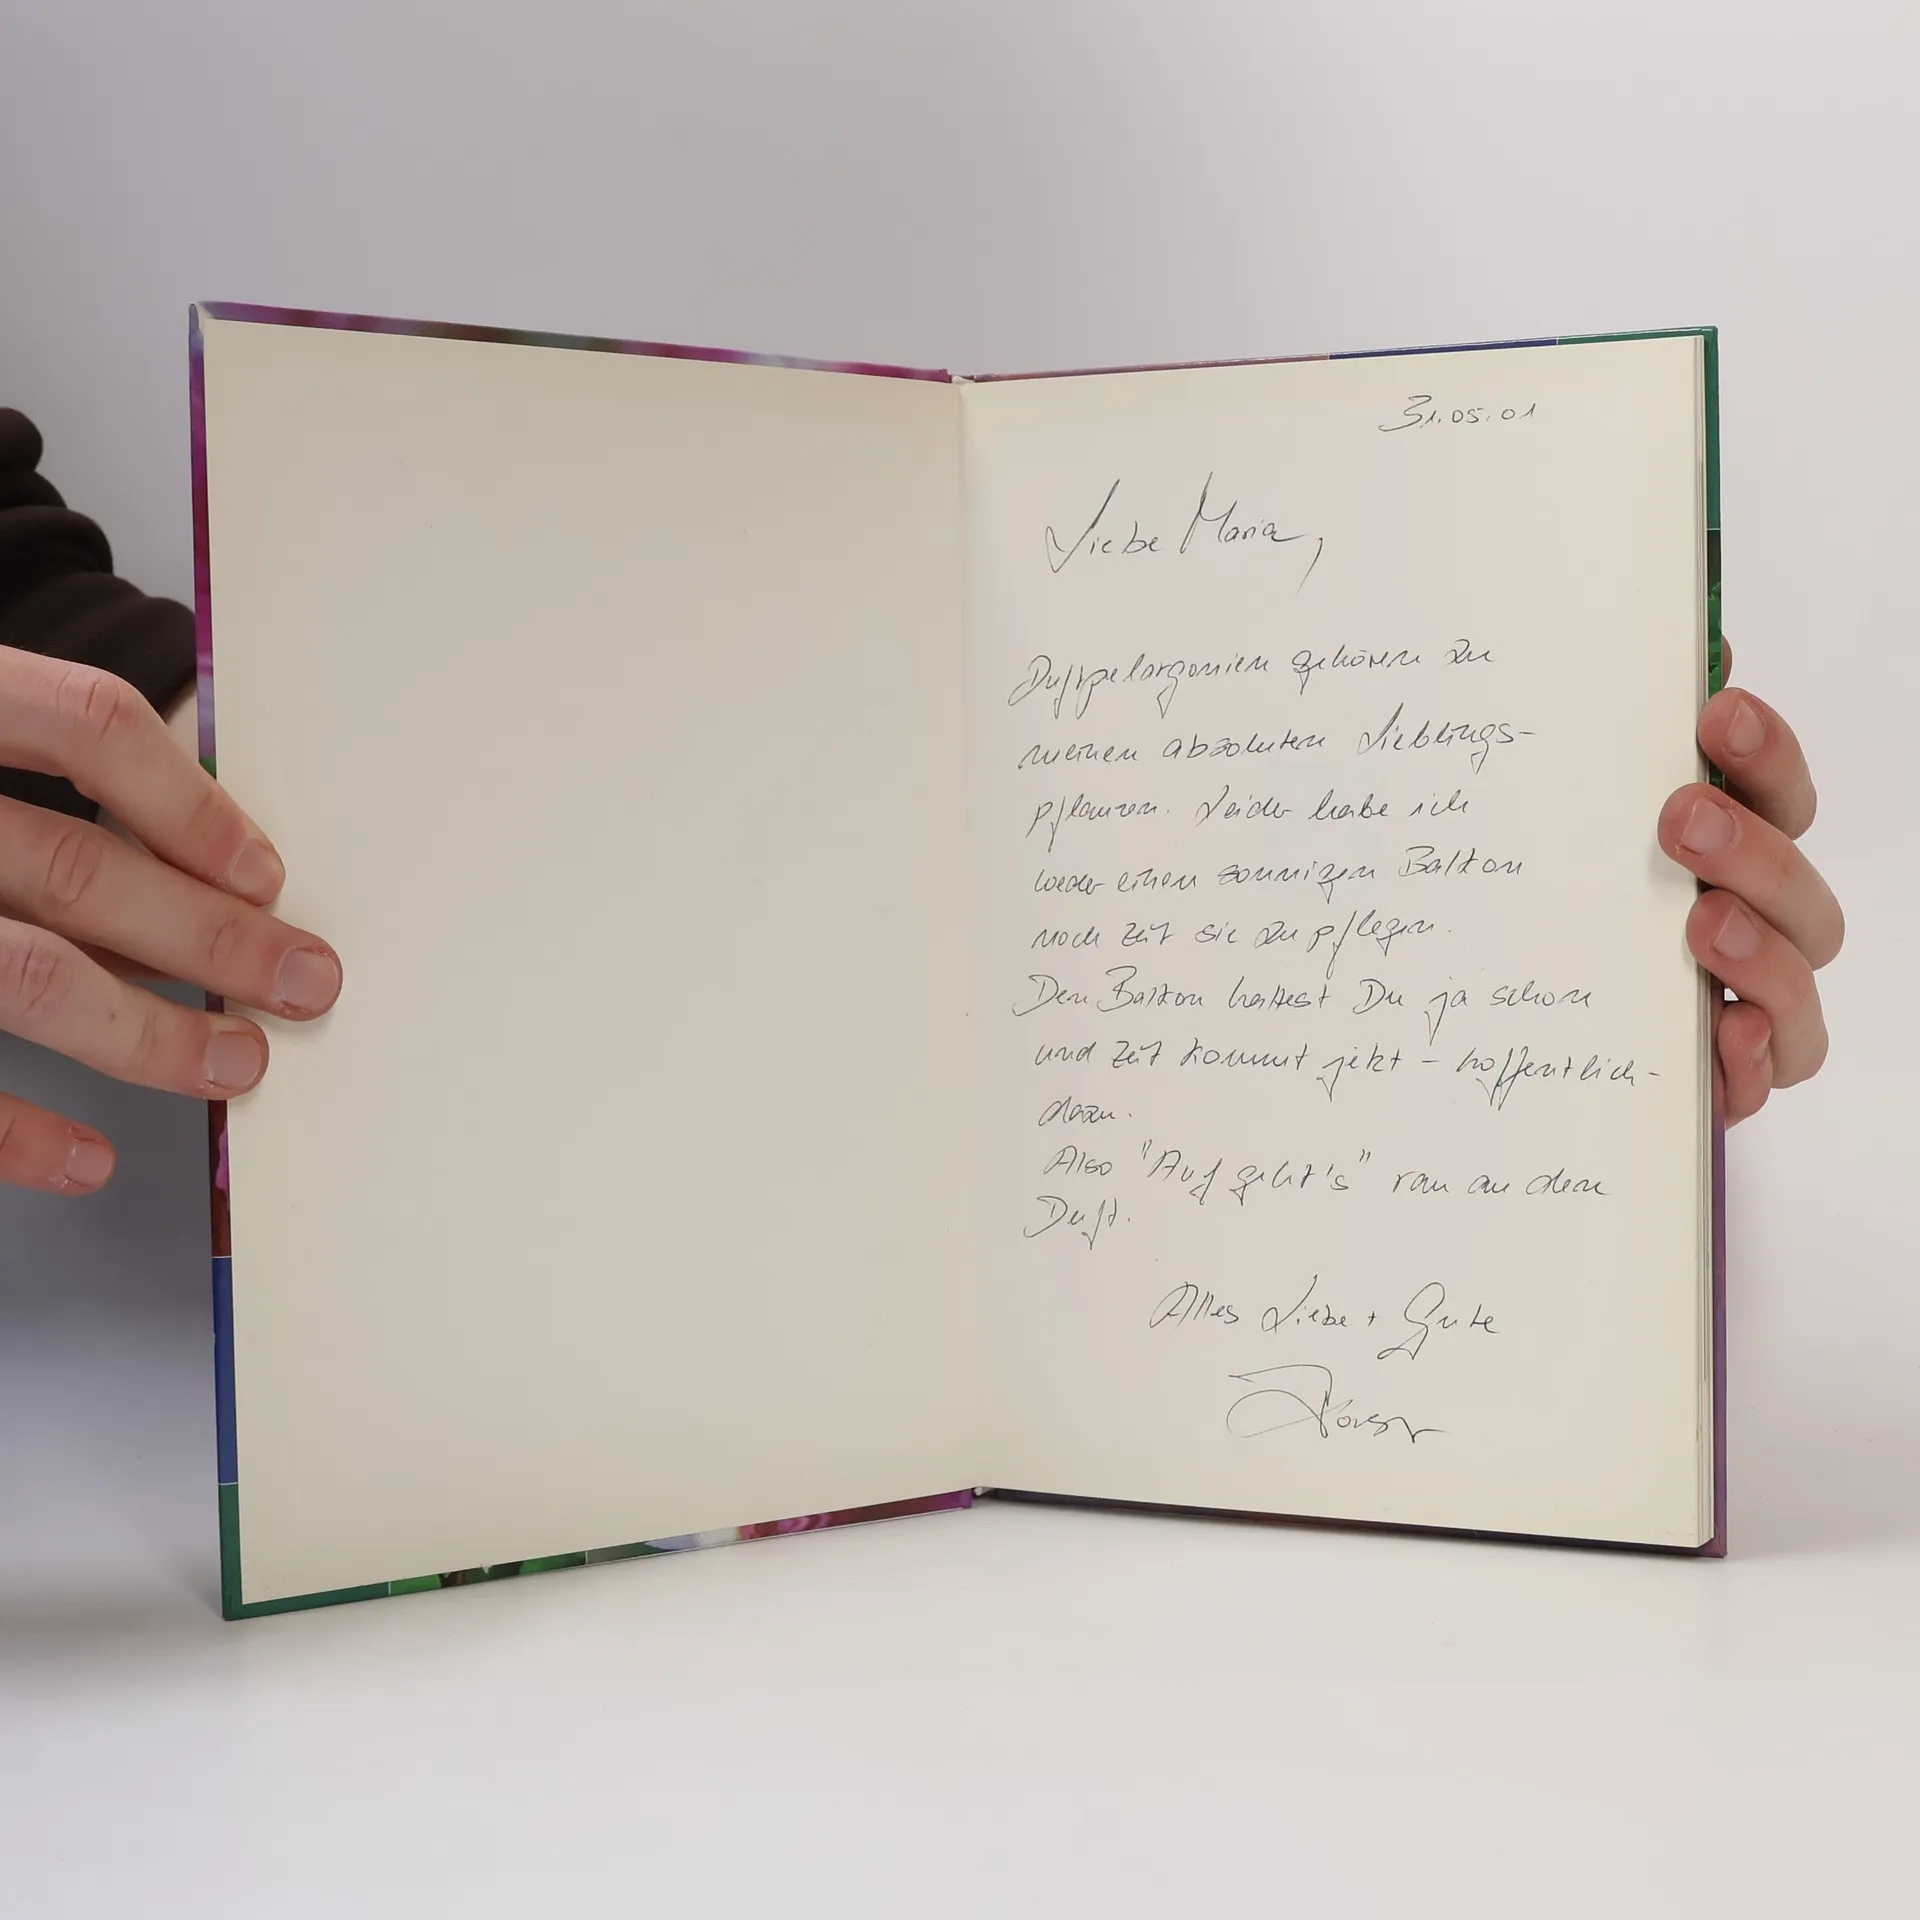 31.05.01
Liebe Maria,
Duftpelargonien gehören zu
meinen absoluten Lieblings-
pflanzen. Leider habe ich
weder einen sonnigen Balkon
noch Zeit sie zu pflegen.
Den Balkon hattest Du ja schon
und Zeit kommt jetzt - hoffentlich -
dazu.
Also "Auf geht's" ran an den
Duft.
Alles Liebe + Gute